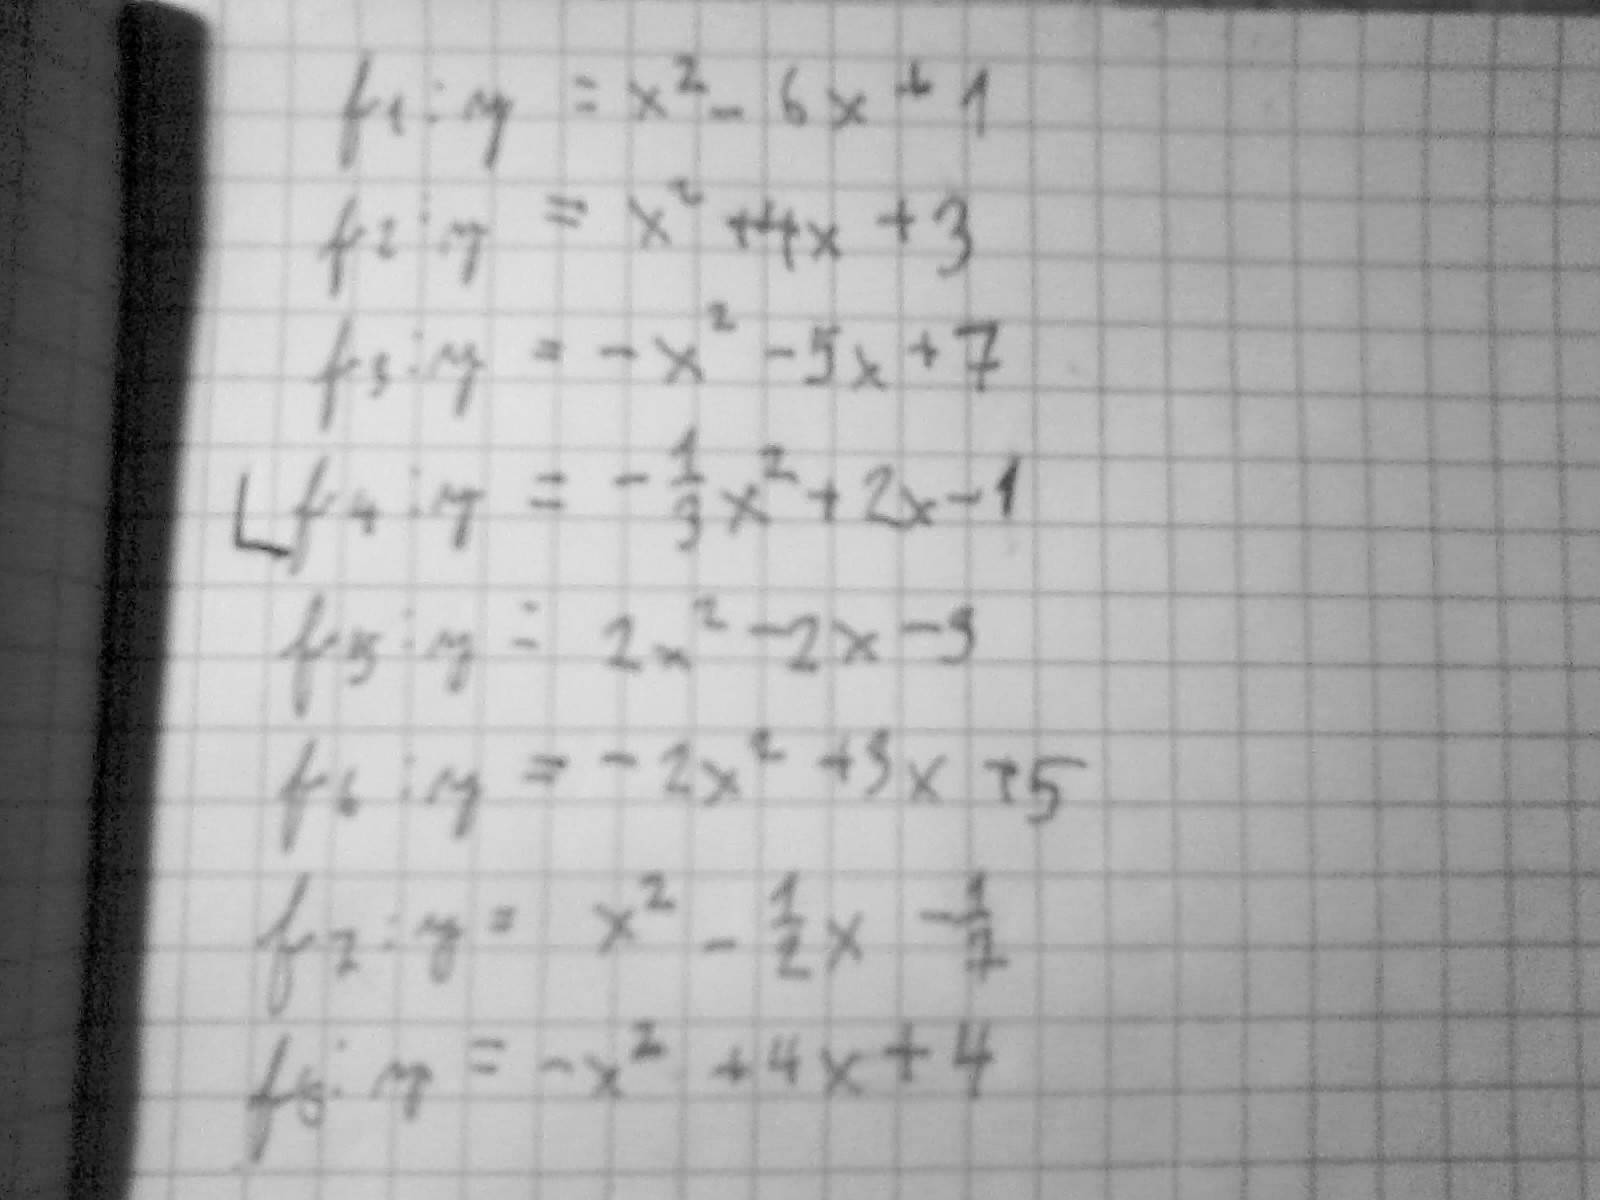 f1: y = x² - 6x + 1
f2: y = x² + 4x + 3
f3: y = -x² - 5x + 7
f4: y = -1/3 x² + 2x - 1
f5: y = 2x² - 2x - 3
f6: y = -2x² + 3x + 5
f7: y = x² - 1/2 x - 1/7
f8: y = -x² + 4x + 4